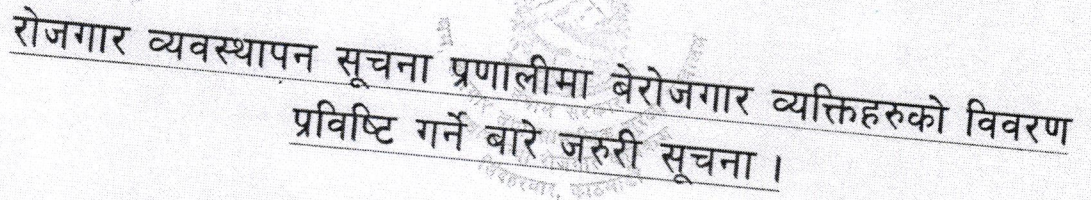 रोजगार व्यवस्थापन सूचना प्रणालीमा बेरोजगार व्यक्तिहरुको विवरण
प्रविष्टि गर्ने बारे जरुरी सूचना ।